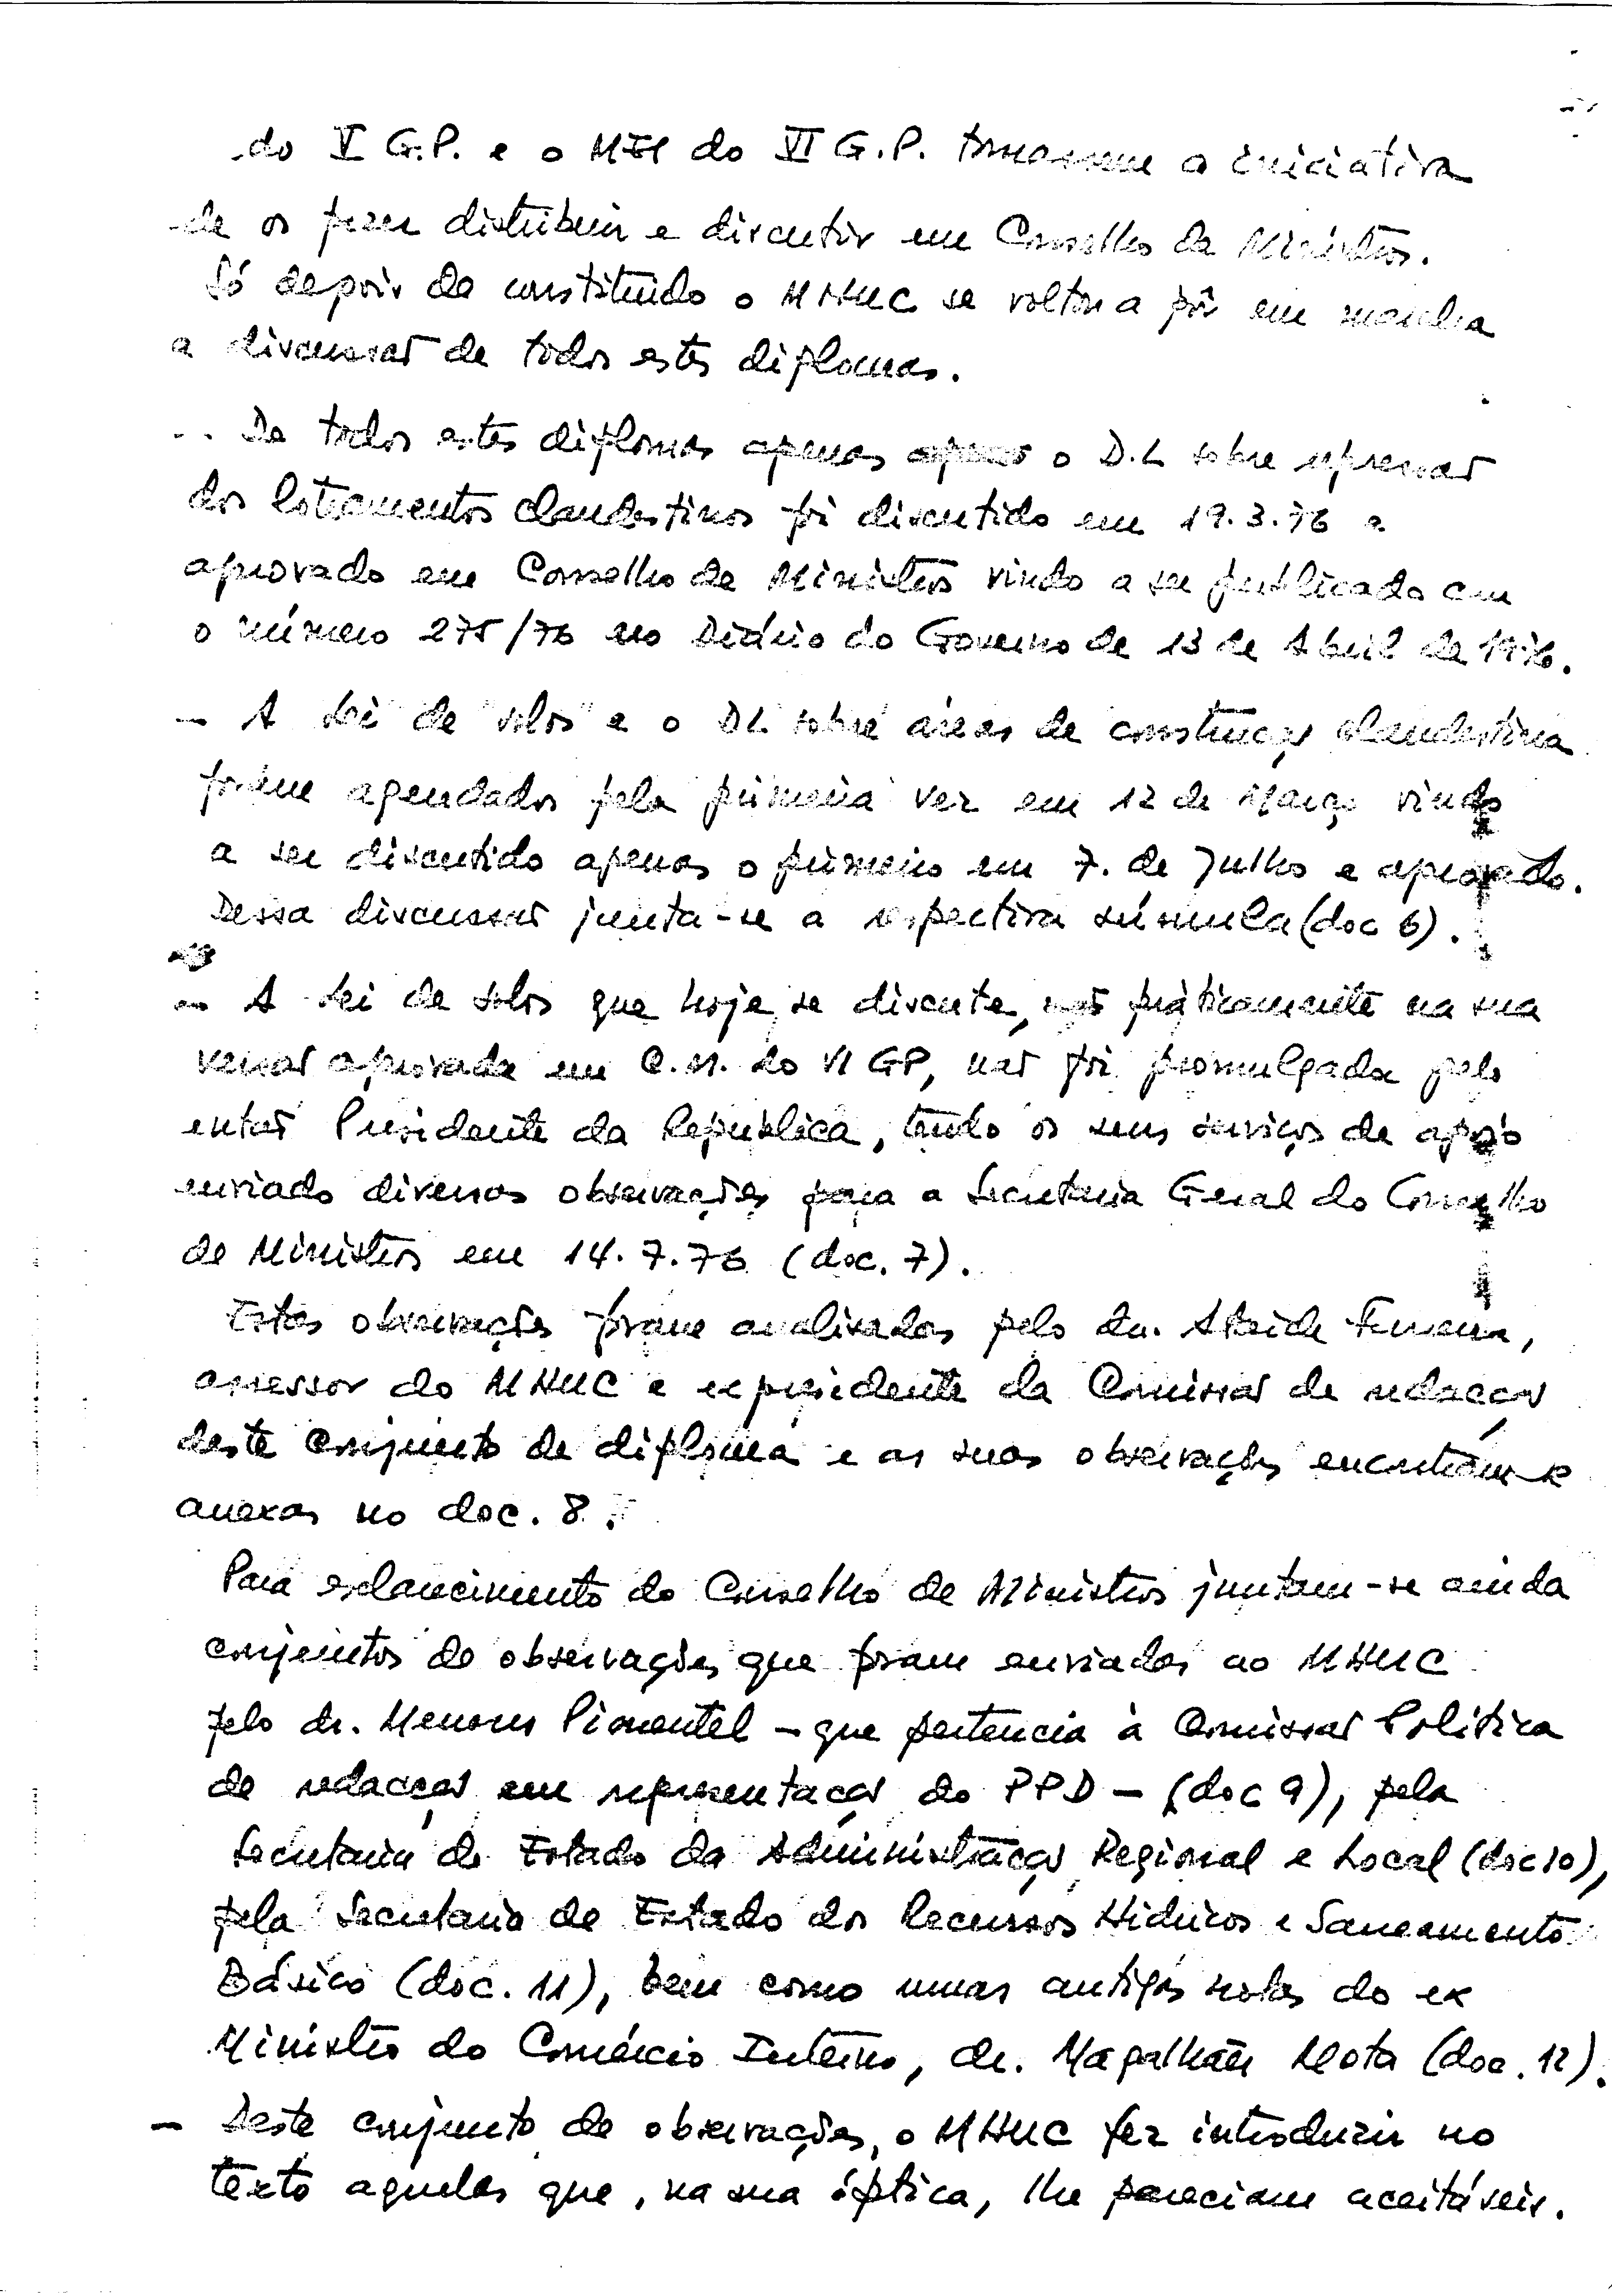 do V G.P. e o MEI do VI G.P. tomassem a iniciativa
de os fazer distribuir e discutir em Conselho de Ministros.
Só depois de constituido o MHUC se voltou a pôr em marcha
a discussão de todos estes diplomas.
- De todos estes diplomas apenas o D.L sobre repressão
dos loteamentos clandestinos foi discutido em 19.3.76 e
aprovado em Conselho de Ministros vindo a ser publicado com
o número 275/76 no Diário do Governo de 13 de Abril de 1976.
- A Lei de "solos" e o DL sobre áreas de construção clandestina
foram agendados pela primeira vez em 12 de Março vindo
a ser discutido apenas o primeiro em 7. de Julho e aprovado.
Dessa discussão junta-se a respectiva súmula (doc 6).
- A Lei de solos que hoje se discute, praticamente na sua
versão aprovada em C.M. do VI GP, não foi promulgada pelo
então Presidente da República, tendo os seus serviços de apoio
enviado diversas observações para a Secretaria Geral do Conselho
de Ministros em 14.7.76 (doc. 7).
Estas observações foram analisadas pelo dr. Ataide Ferreira,
assessor do MHUC e ex presidente da Comissão de redacção
deste conjunto de diploma e as suas observações encontram-se
anexas no doc. 8.
Para esclarecimento do Conselho de Ministros juntam-se ainda
conjuntos de observações que foram enviados ao MHUC
pelo dr. Meneres Pimentel - que pertencia à Comissão Politica
de redacção em representação do PPD - (doc 9), pela
Secretaria de Estado da Administração Regional e Local (doc 10),
pela Secretaria de Estado dos Recursos Hidricos e Saneamento
Básico (doc. 11), bem como umas antigas notas do ex
Ministro do Comércio Interno, dr. Magalhães Mota (doc. 12).
- Deste conjunto de observações, o MHUC fez introduzir no
texto aquelas que, na sua óptica, lhe pareciam aceitáveis.